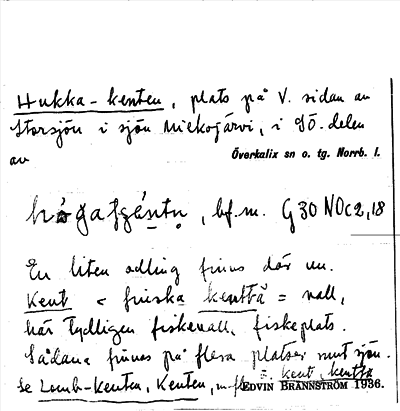 Hukka-kenten, plats på V. sidan av
Storsjön i sjön Miekojärvi, i SÖ. delen
av
Överkalix sn o. tg. Norrb. l.
, bf. m. G 30 NO c 2, 18
En liten odling finns där nu.
Kent < finska kenttä = vall,
här tydligen fiskevall, fiskeplats.
Sådana finnes på flera platser runt sjön.
Se Lomb-kenten, Kenten, m fl
kent, kentta
EDVIN BRÄNNSTRÖM 1936.